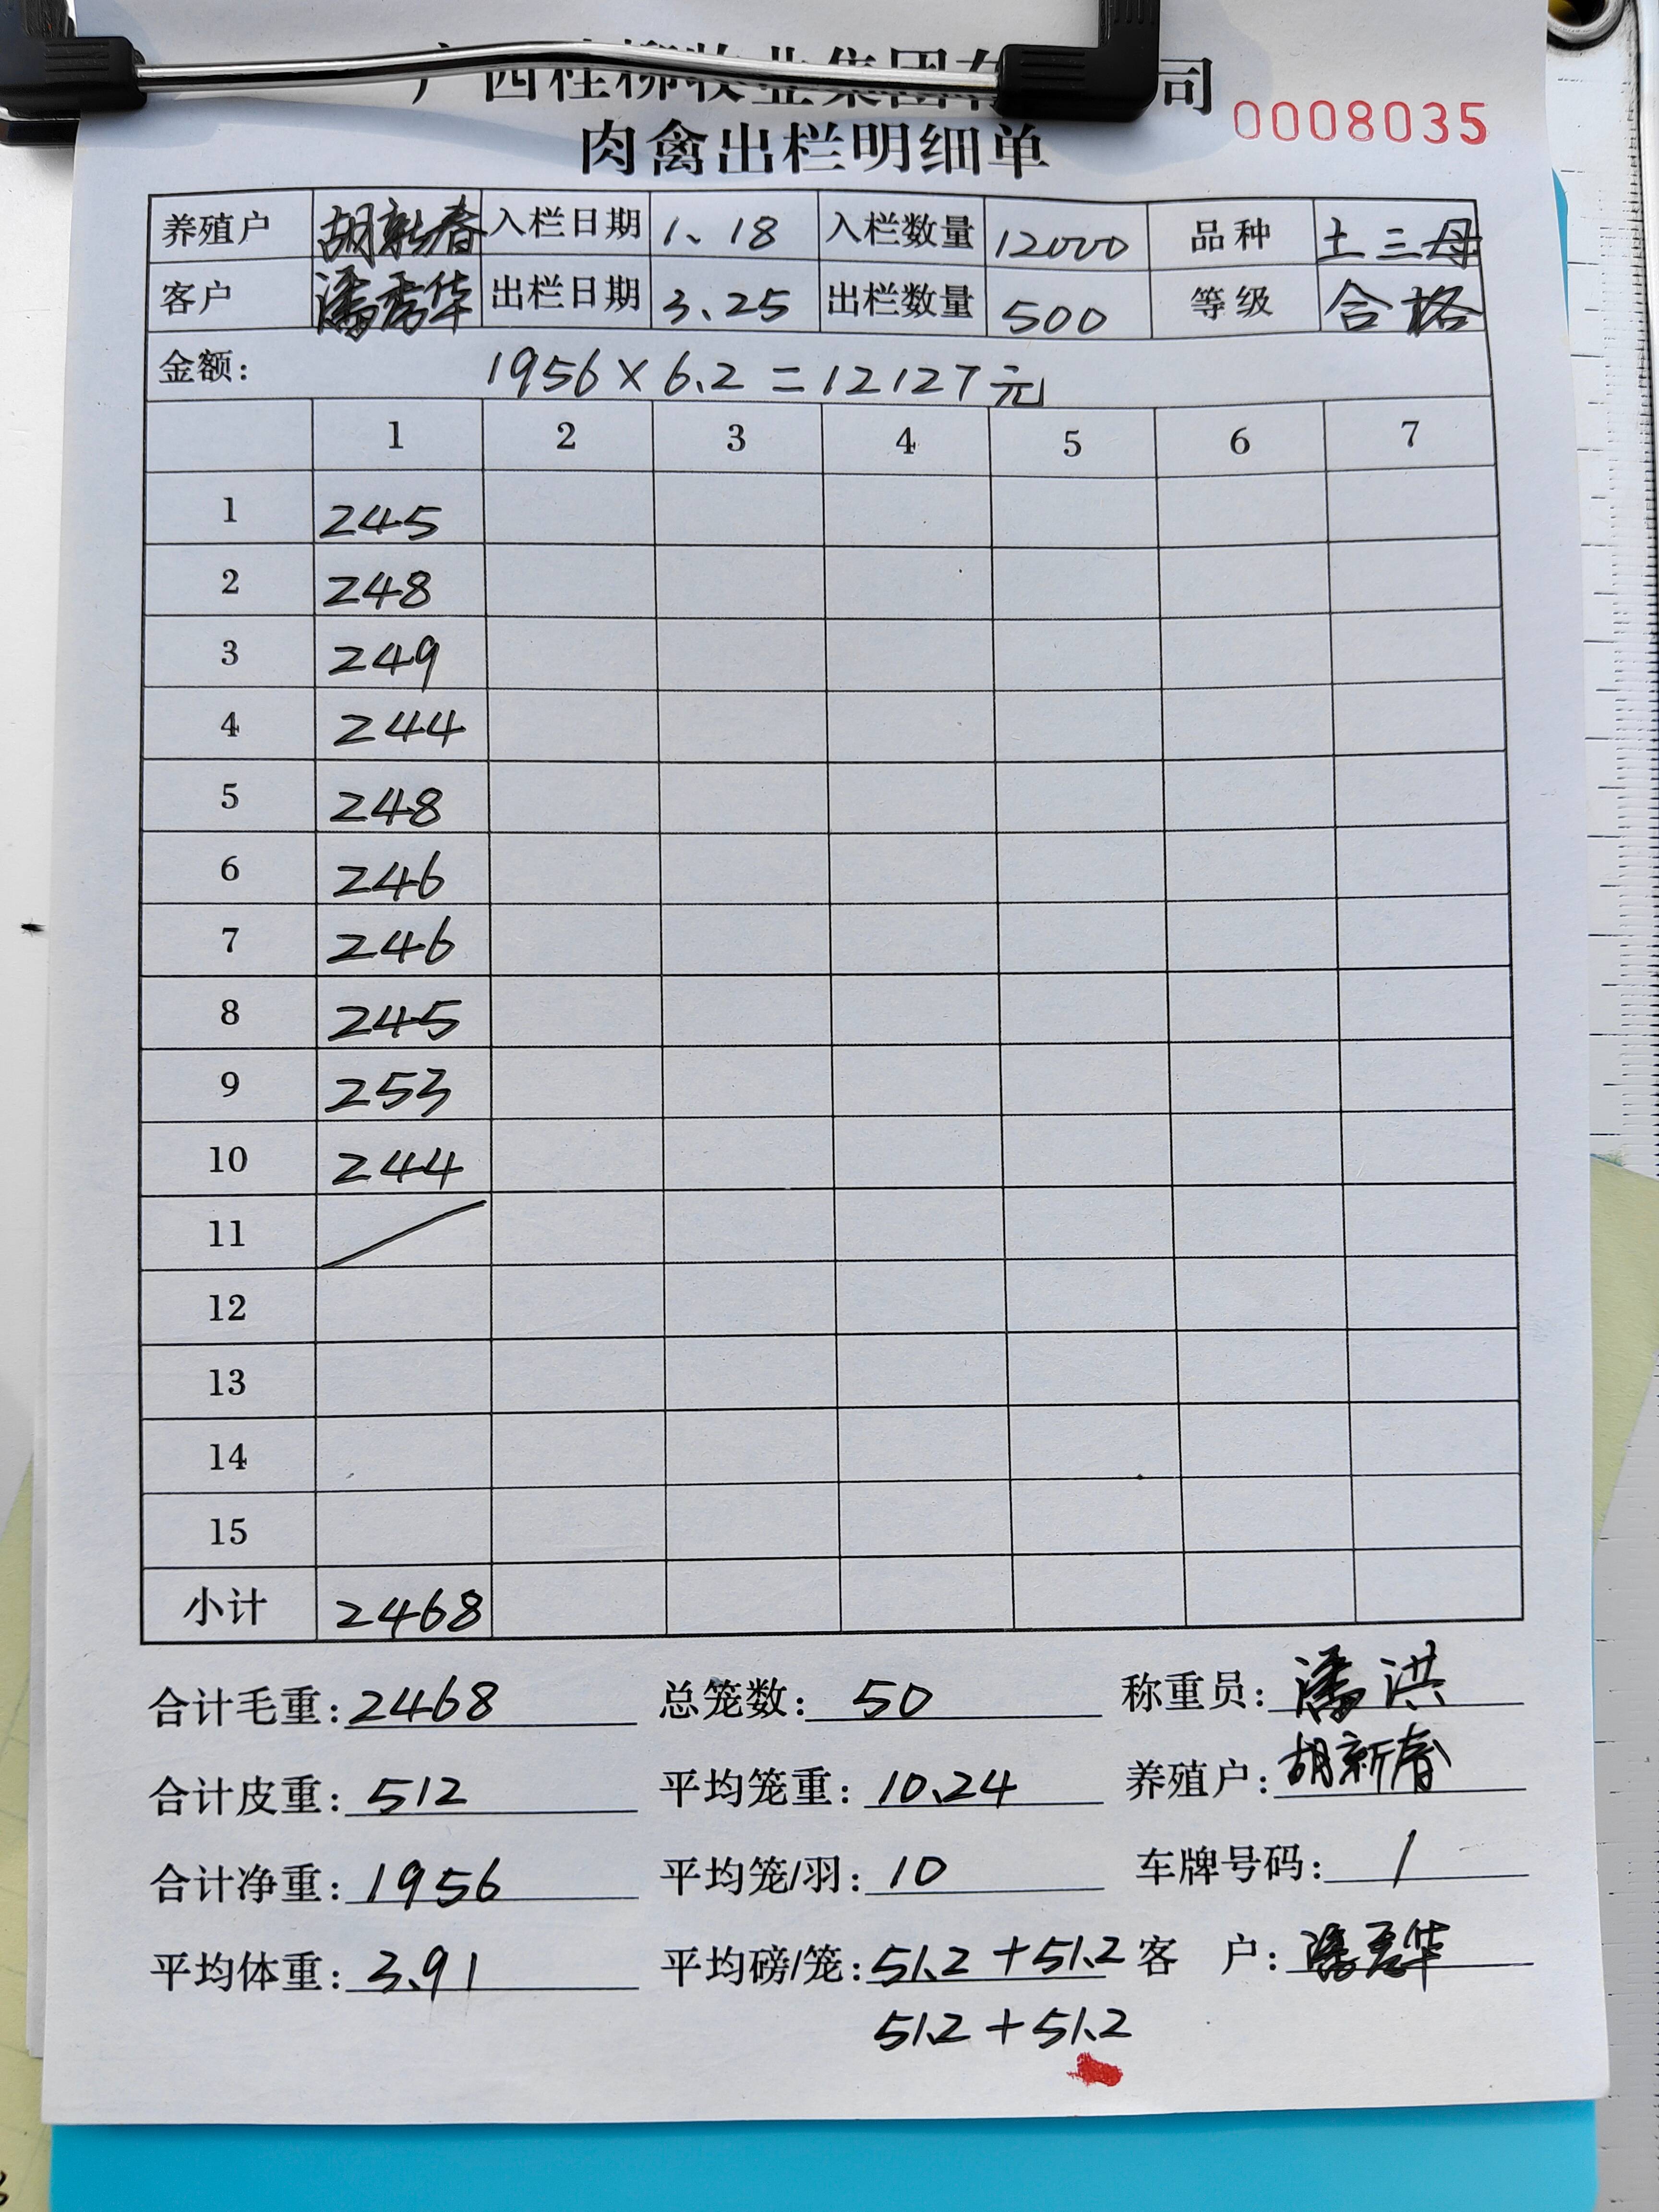 广西桂柳牧业集团有 司
0008035
肉禽出栏明细单
养殖户 胡新春 入栏日期 1、18 入栏数量 12000 品种 土三母
客户 潘秀华 出栏日期 3、25 出栏数量 500 等级 合格
金额: 1956×6.2=12127元
1 2 3 4 5 6 7
1 245
2 248
3 249
4 244
5 248
6 246
7 246
8 245
9 253
10 244
11
12
13
14
15
小计 2468
合计毛重: 2468 总笼数: 50 称重员: 潘洪
合计皮重: 512 平均笼重: 10.24 养殖户: 胡新春
合计净重: 1956 平均笼/羽: 10 车牌号码: /
平均体重: 3.91 平均磅/笼: 51.2+51.2 客 户: 潘秀华
51.2+51.2